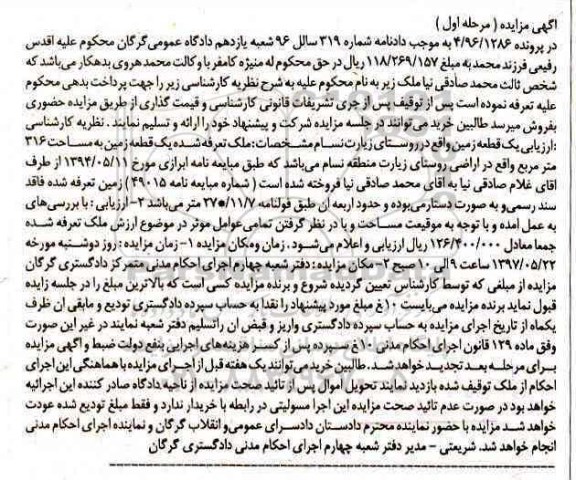 آگهی مزایده ( مرحله اول )
در پرونده ۴/۹۶/۱۲۸۶ به موجب دادنامه شماره ۳۱۹ سالل ۹۶ شعبه یازدهم دادگاه عمومی گرگان محکوم علیه اقدس
رفیعی فرزند محمد به مبلغ ۱۱۸/۲۶۹/۱۵۷ ریال در حق محکوم له منیژه کامفر با وکالت محمد هروی بدهکار می‌باشد که
شخص ثالث محمد صادقی نیا ملک زیر به نام محکوم علیه به شرح نظریه کارشناسی زیر را جهت پرداخت بدهی محکوم
علیه تعرفه نموده است پس از توقیف پس از جری تشریفات قانونی کارشناسی و قیمت گذاری از طریق مزایده حضوری
بفروش میرسد طالبین خرید می‌توانند در جلسه مزایده شرکت و پیشنهاد خود را ارائه و تسلیم نمایند . نظریه کارشناسی
:ارزیابی یک قطعه زمین واقع در روستای زیارت نسام مشخصات : ملک تعرفه شده یک قطعه زمین به مساحت ۳۱۶
متر مربع واقع در اراضی روستای زیارت منطقه نسام می‌باشد که طبق مبایعه نامه ابرازی مورخ ۱۳۹۴/۰۵/۱۱ از طرف
اقای غلام صادقی نیا به آقای محمد صادقی نیا فروخته شده است ( شماره مبایعه نامه ۴۹۰۱۵ ) زمین تعرفه شده فاقد
سند رسمی‌و به صورت دستارمی‌بوده و حدود اربعه آن طبق قولنامه ۲۷*۱۱/۷ متر می‌باشد ۲- ارزیابی : با بررسی‌های
به عمل امده و با توجه به موقیعت مساحت و با در نظر گرفتن تمامی‌عوامل موثر در موضوع ارزش ملک تعرفه شده
جمعا معادل ۱۲۶/۴۰۰/۰۰۰ ریال ارزیابی و اعلام می‌شود . زمان ومکان مزایده ۱- زمان مزایده : روز دوشنبه مورخه
۱۳۹۷/۰۵/۲۲ ساعت ۹ الی ۱۰ صبح ۲- مکان مزایده : دفتر شعبه چهارم اجرای احکام مدنی متمرکز دادگستری گرگان
مزایده از مبلغی که توسط کارشناس تعیین گردیده شروع و برنده مزایده کسی است که بالاترین مبلغ را در جلسه زایده
قبول نماید برنده مزایده می‌بایست ۱۰٪ مبلغ مورد پیشنهاد را نقدا به حساب سپرده دادگستری تودیع و مابقی آن ظرف
یکماه از تاریخ اجرای مزایده به حساب سپرده دادگستری واریز و قبض آن راتسلیم دفتر شعبه نمایند در غیر این صورت
وفق ماده ۱۲۹ قانون اجرای احکام مدنی ۱۰٪ سپرده پس از کسر هزینه‌های اجرایی بنفع دولت ضبط و آگهی مزایده
برای مرحله بعد تجدید خواهد شد . طالبین خرید می‌توانند یک هفته قبل از اجرای مزایده با هماهنگی این اجرای
احکام از ملک توقیف شده بازدید نمایند تحویل اموال پس از تائید صحت مزایده از ناحیه دادگاه صادر کننده این اجرائیه
خواهد بود در صورت عدم تائید صحت مزایده این اجرا مسولیتی در رابطه با خریدار ندارد و فقط مبلغ تودیع شده عودت
خواهد شد مزایده با حضور نماینده محترم دادستان دادسرای عمومی‌و انقلاب گرگان و نماینده اجرای احکام مدنی
انجام خواهد شد. شریعتی - مدیر دفتر شعبه چهارم اجرای احکام مدنی دادگستری گرگان